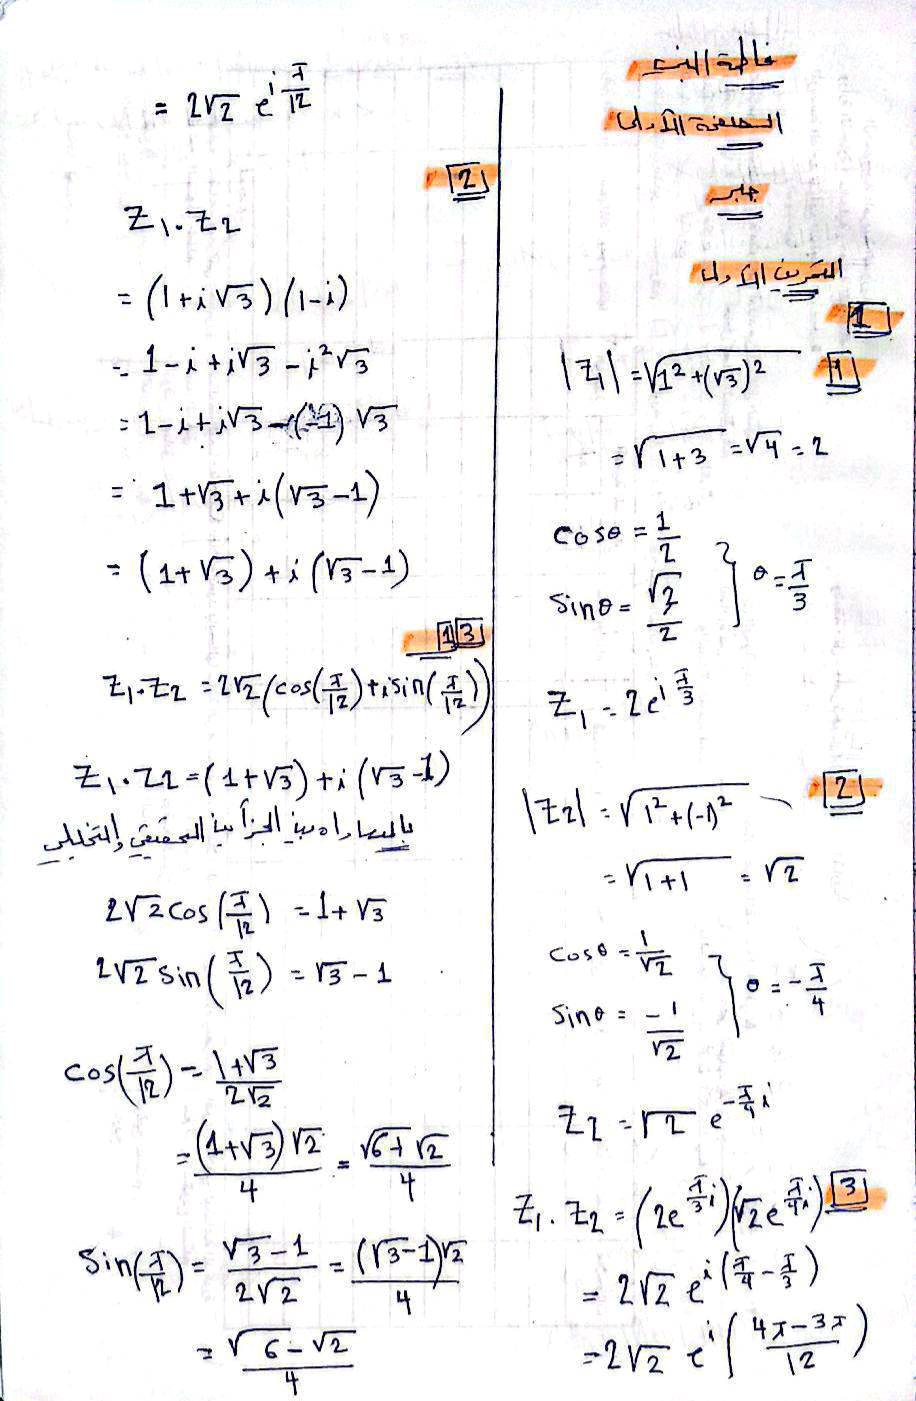 فاطمة البند
الصفحة الأولى
جبر
التمرين الأول
1
1 |Z₁| = √(1² + (√3)²)
= √(1+3) = √4 = 2
cosθ = 1/2
sinθ = √3/2 } θ = π/3
Z₁ = 2e^(i π/3)
2 |Z2| = √(1² + (-1)²)
= √(1+1) = √2
cosθ = 1/√2
sinθ = -1/√2 } θ = -π/4
Z2 = √2 e^(-π/4 i)
3 Z₁. Z2 = (2e^(π/3 i))(√2e^(π/4 i))
= 2√2 e^(i(π/4 - π/3))
= 2√2 e^(i((4π-3π)/12))
= 2√2 e^(i π/12)
2
Z₁. Z2
= (1+i√3)(1-i)
= 1-i+i√3-i²√3
= 1-i+i√3-(-1)√3
= 1+√3+i(√3-1)
= (1+√3)+i(√3-1)
1 3
Z₁.Z2 = 2√2(cos(π/12)+isin(π/12))
Z₁.Z2 = (1+√3)+i(√3-1)
بالمساواة بين الجزأين الحقيقي والتخيلي
2√2cos(π/12) = 1+√3
2√2sin(π/12) = √3-1
cos(π/12) = (1+√3)/(2√2)
= ((1+√3)√2)/4 = (√6+√2)/4
Sin(π/12) = (√3-1)/(2√2) = ((√3-1)√2)/4
= (√6-√2)/4